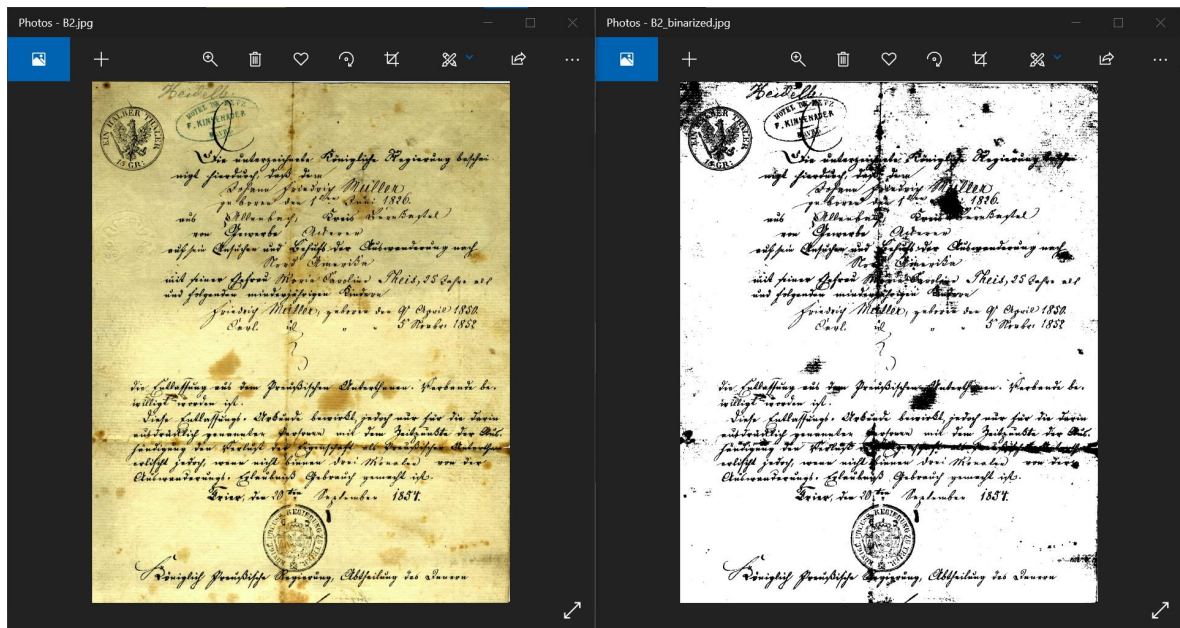 Photos - B2.jpg
Heidelb
EIN HALBER THALER
15 GR:
HOTEL DE
F. KINDENADER
HAVRE
Die unterzeichnete Königliche Regierung beschei
nigt hierdurch, daß dem
Johann Friedrich Müller
geboren den 1ten Juni 1826.
aus Allenbach, Kreis Bernkastel
von Gewerbe Ackerer
auf sein Ansuchen und Behufs der Auswanderung nach
Nord Amerika
mit seiner Ehefrau Marie Caroline Theis, 25 Jahre alt
und folgenden minderjährigen Kindern
Friedrich Müller, geboren den 9t April 1850.
Carl id " " 5t Novbr: 1852
die Entlassung aus dem Preußischen Unterthanen-Verbande be-
willigt worden ist.
Diese Entlassungs-Urkunde bewirkt jedoch nur für die darin
ausdrücklich genannten Personen mit dem Zeitpunkte der Aus-
händigung den Verlust der Eigenschaft als Preußischer Unterthan
erlischt jedoch, wenn nicht binnen drei Monaten von der
Auswanderungs-Erlaubniß Gebrauch gemacht ist.
Trier, den 20ten September 1854.
Königlich Preußische Regierung, Abtheilung des Innern
Photos - B2_binarized.jpg
Heidelb
EIN HALBER THALER
15 GR:
HOTEL DE
F. KINDENADER
HAVRE
Die unterzeichnete Königliche Regierung beschei
nigt hierdurch, daß dem
Johann Friedrich Müller
geboren den 1ten 1826.
aus Allenbach, Kreis Bernkastel
von Gewerbe Ackerer
auf sein Ansuchen und Behufs der Auswanderung nach
Nord Amerika
mit seiner Ehefrau Marie Caroline Theis, 25 Jahre alt
und folgenden minderjährigen Kindern
Friedrich Müller, geboren den 9t April 1850.
Carl id " " 5t Novbr: 1852
die Entlassung aus dem Preußischen Unterthanen-Verbande be-
willigt worden ist.
Diese Entlassungs-Urkunde bewirkt jedoch nur für die darin
ausdrücklich genannten Personen mit dem Zeitpunkte der Aus-
händigung den Verlust der Eigenschaft als Preußischer Unterthan
erlischt jedoch, wenn nicht binnen drei Monaten von der
Auswanderungs-Erlaubniß Gebrauch gemacht ist.
Trier, den 20ten September 1854.
Königlich Preußische Regierung, Abtheilung des Innern